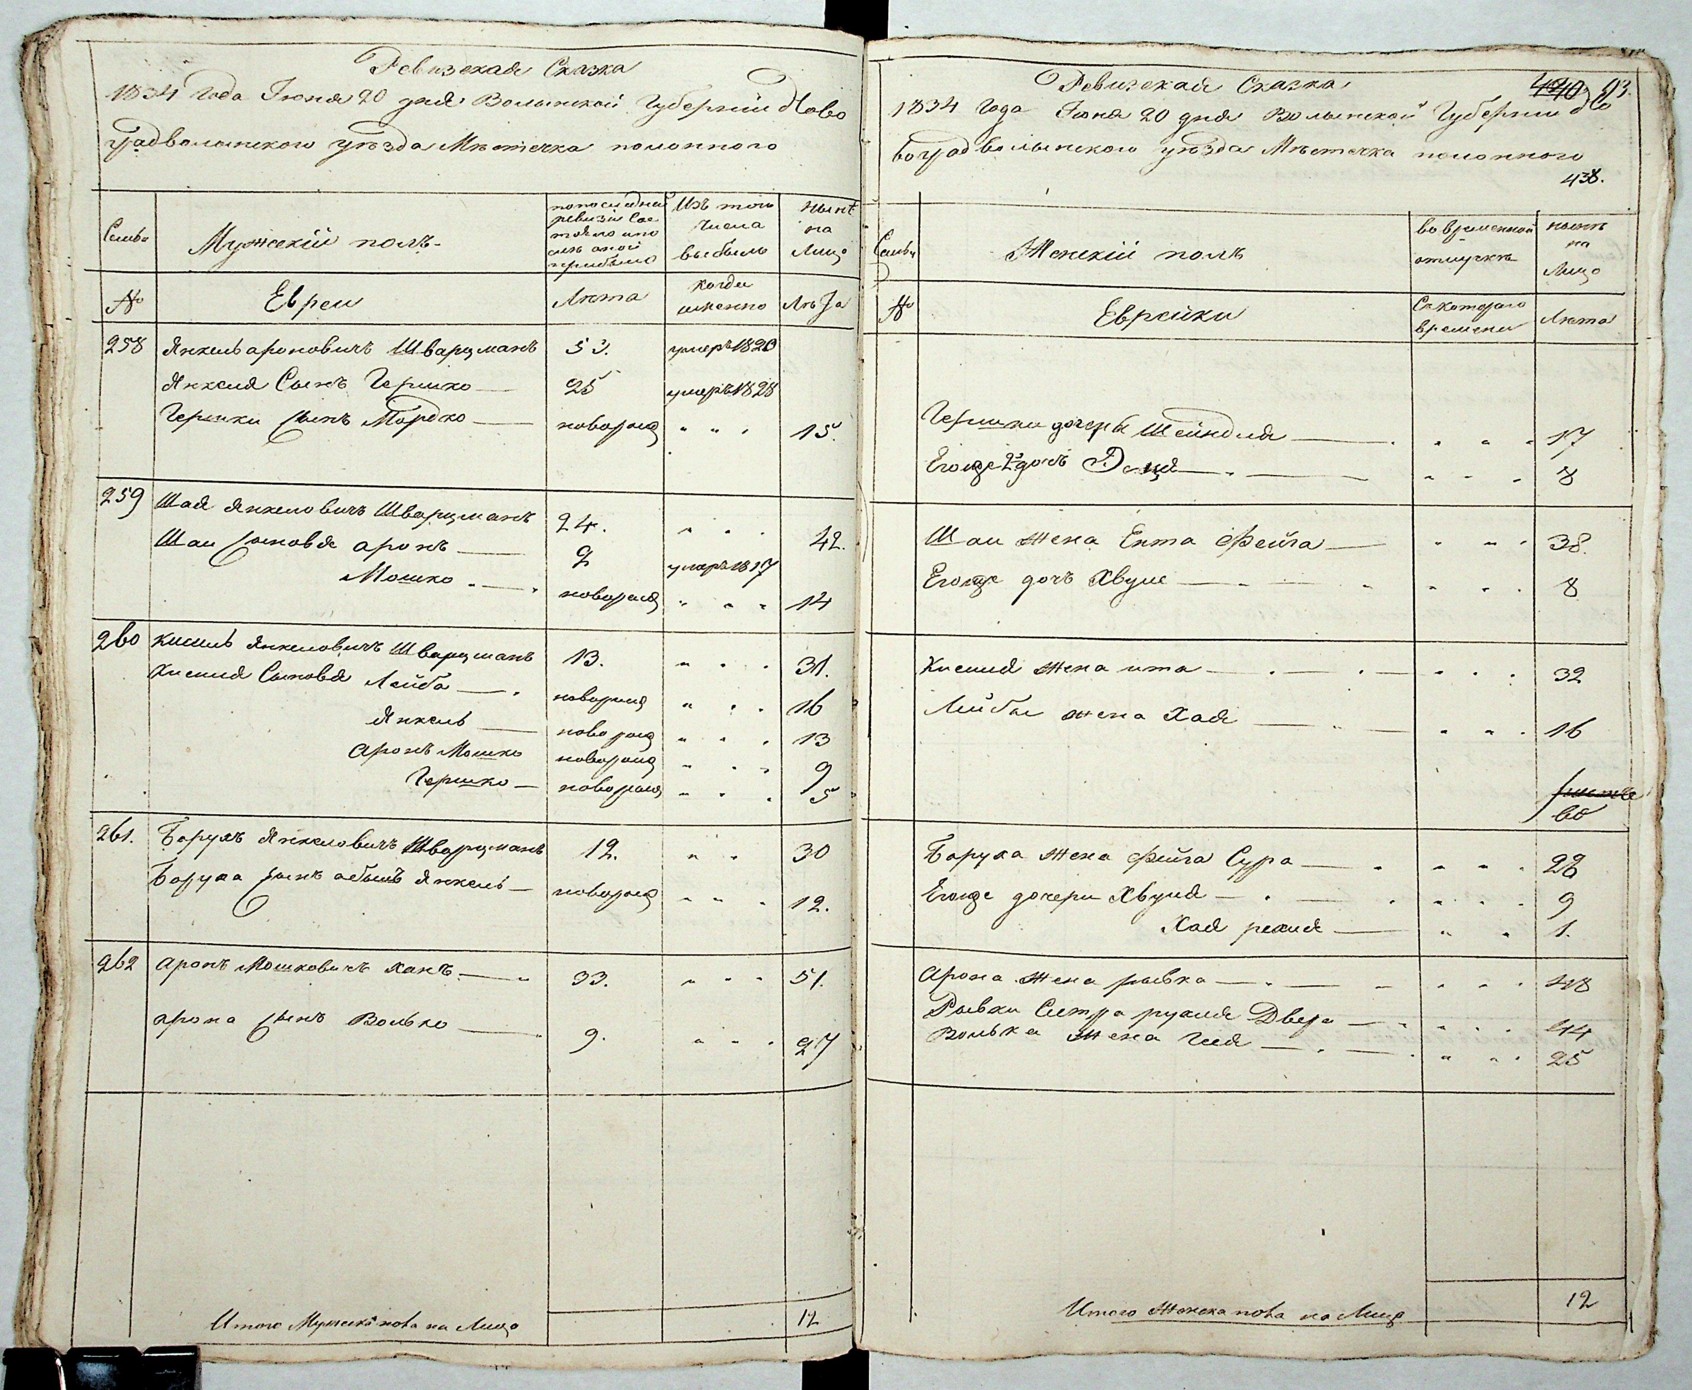 Ревизская Сказка
1834 Года Іюня 20 дня Волынской Губерніи Ново
градволынского уѣзда Мѣстечка полонного
Семьи
Мужескій полъ
по последней
ревизіи сос
тояло и по
слѣ оной
прибыло
Изъ того
числа
выбыло
нынѣ
на
Лицо
№
Евреи
Лѣта
когда
именно
Лѣта
258 Янкель ароновичъ Шварцманъ 53. умеръ 1820
Янкеля Сынъ Гершко 25 умеръ 1828
Гершки сынъ Мордко новорож 15.
259 Шая Янкеловичъ Шварцманъ 24. 42.
Шаи сыновя аронъ 2 умеръ 1817
Мошко новорож 14
260 кисиль Янкеловичъ Шварцманъ 13. 31.
Кисиля Сыновя Лейба новорож 16
Янкель новорож 13
аронъ Мошко новорож 9
Гершко новорож 5
261. Борухъ Янкеловичъ Шварцманъ 12. 30
Боруха сынъ абышъ Янкель новорож 12.
262 аронъ Мошковичъ канъ 33. 51.
арона сынъ Волько 9. 27
Итого Мужеска пола на Лицо 12
Ревизская Сказка
440 93.
1834 Года Іюня 20 дня Волынской Губерніи Но
воградволынского уѣзда Мѣстечка полонного
438.
Семьи
Женскій полъ
во временной
отлучкѣ
нынѣ
на
Лицо
№
Еврейки
Съ которого
времени
Лѣта
Гершки дочеры Шейндля 17
Егоже 2 дочъ 8
Шаи жена Ента Фейга 38.
Егоже дочъ Хвуле 8
Кисиля жена ита 32
Лейбы жена Хая 16
Боруха жена фейга Сура 28
Егоже дочери Хвуля 9
Хая рехля 1.
Арона жена рывка 48
Рывки Сестра рухля Двера 44
Волька жена Гися 25
Итого Женска пола на Лицо 12